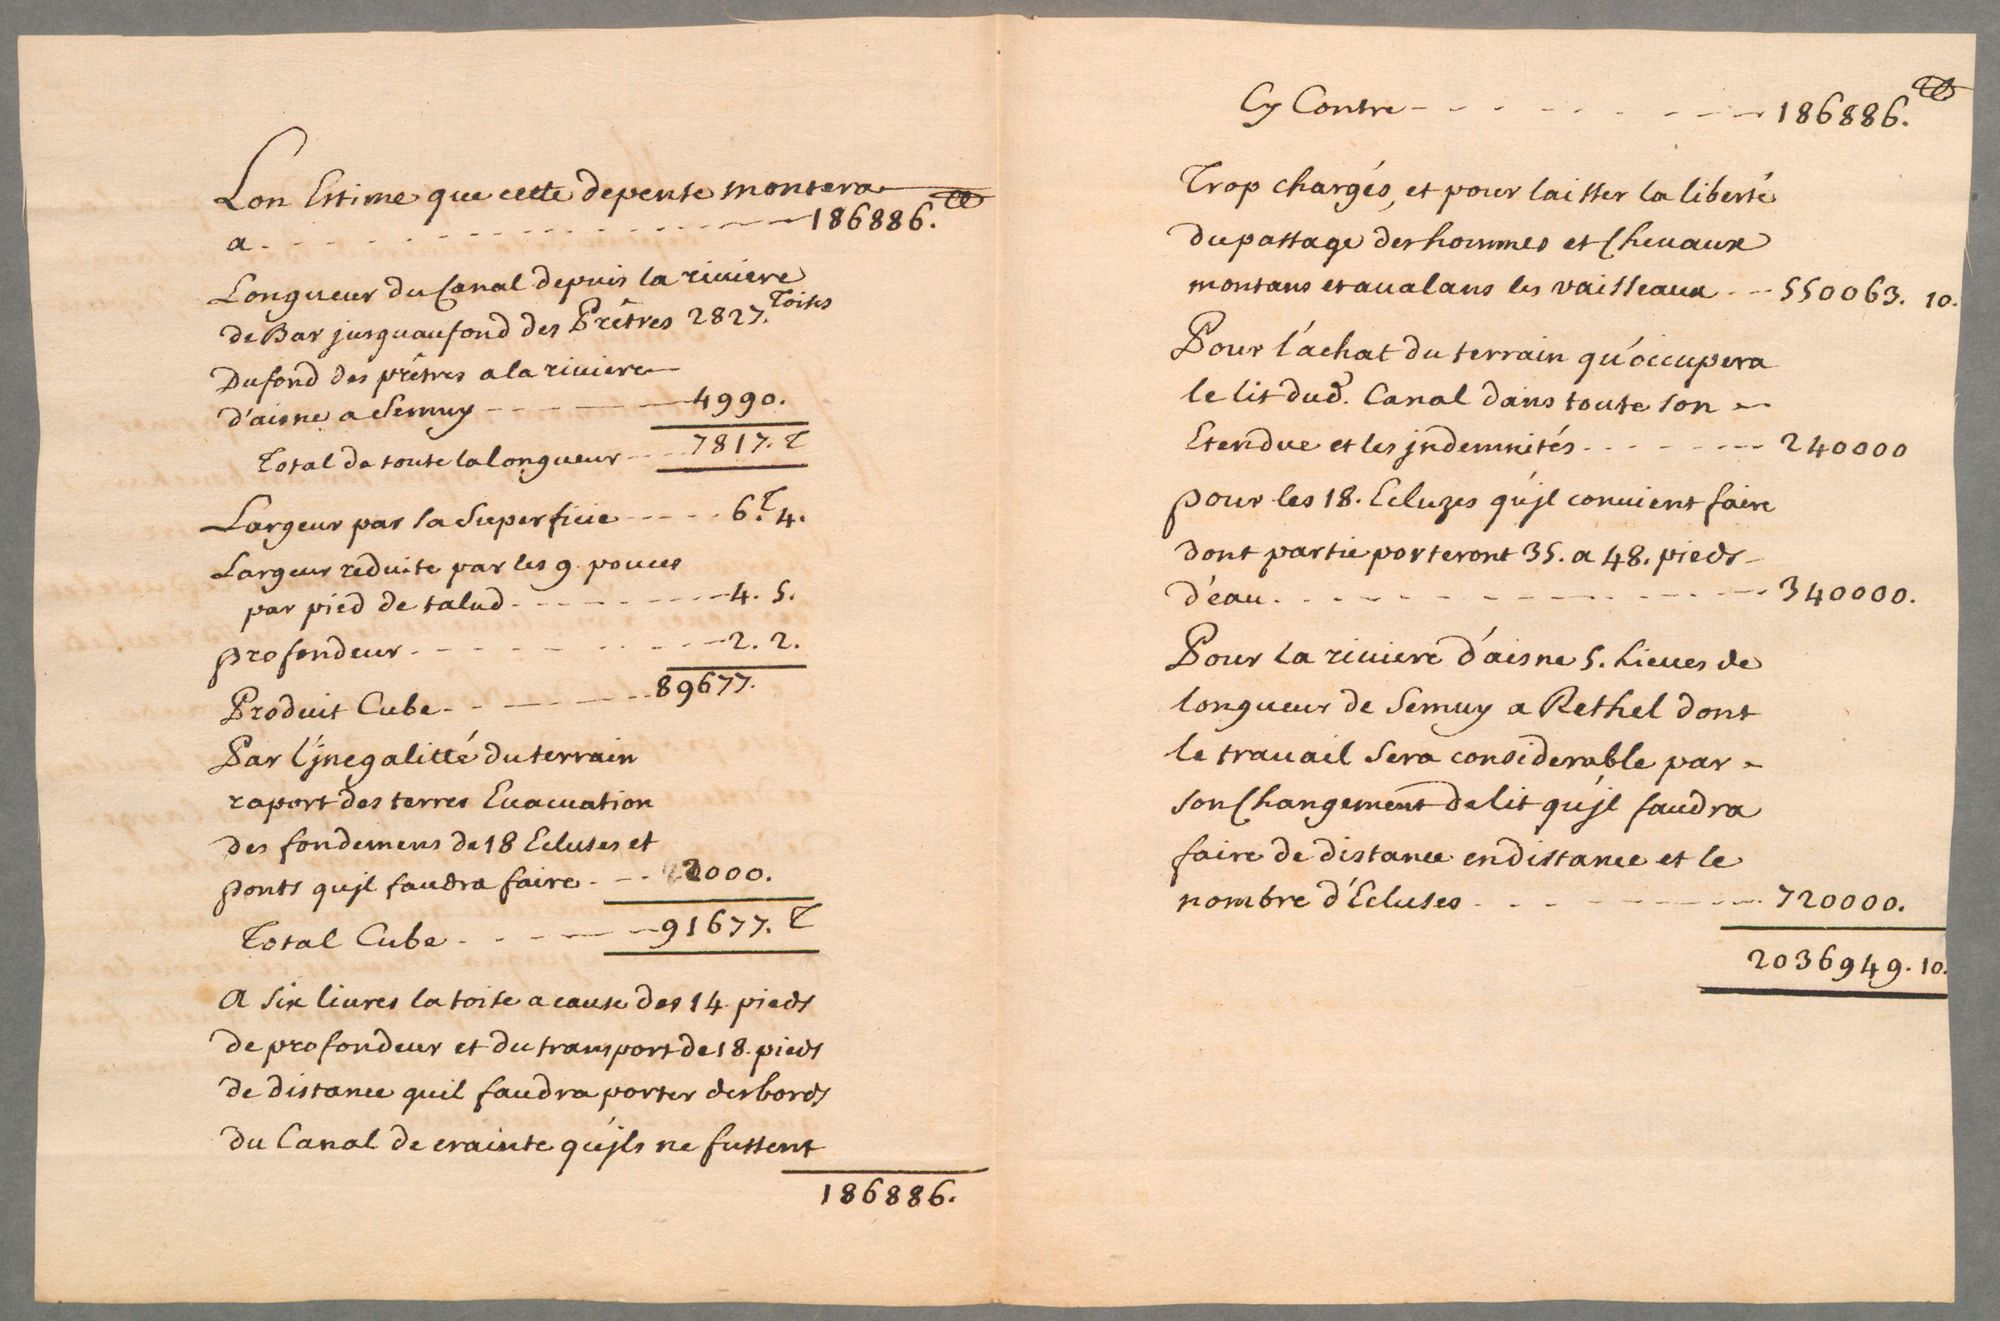 Lon Estime que cette depense montera
a - - - - - - - - - 186886.tt
Longueur du Canal depuis la riviere
de Bar jusquaufond des Prêtres 2827.Toises
Dufond des prêtres a la riviere
d'aisne a Semuy - - - - - 4990.
Total de toute la longueur - - 7817. T
Largeur par la Superficie - - - - 6.T 4.
Largeur reduite par les 9. pouces
par pied de talud - - - - - - 4. 5.
profondeur - - - - - - - - 2. 2.
Produit Cube - - - - - 89677.
Par L'jnegalitté du terrain
raport des terres Evacuation
des fondemens de 18 Ecluses et
ponts qu'jl faudra faire - - - 2000.
Total Cube - - - - - 91677. T
A six livres la toise a cause des 14 pieds
de profondeur et du transport de 18. pieds
de distance quil faudra porter des bords
du Canal de crainte qu'jls ne fussent
186886.
Cy Contre - - - - - - - 186886.tt
Trop chargés, et pour laisser la liberté
du passage des hommes et Chevaux
montans et avalans les vaisseaux - - 550063. 10.
Pour l'achat du terrain qu'occupera
le lit dud. Canal dans toute son
Etendue et les jndemnités - - - - - - 240000
pour les 18. Ecluzes qu'jl convient faire
dont partie porteront 35. a 48. pieds
d'eau - - - - - - - - - - - 340000.
Pour la riviere d'aisne 5. Lieues de
longueur de Semuy a Rethel dont
le travail Sera considerable par
son Changement de lit qu'jl faudra
faire de distance en distance et le
nombre d'Ecluses - - - - - - - 720000.
2036949. 10.